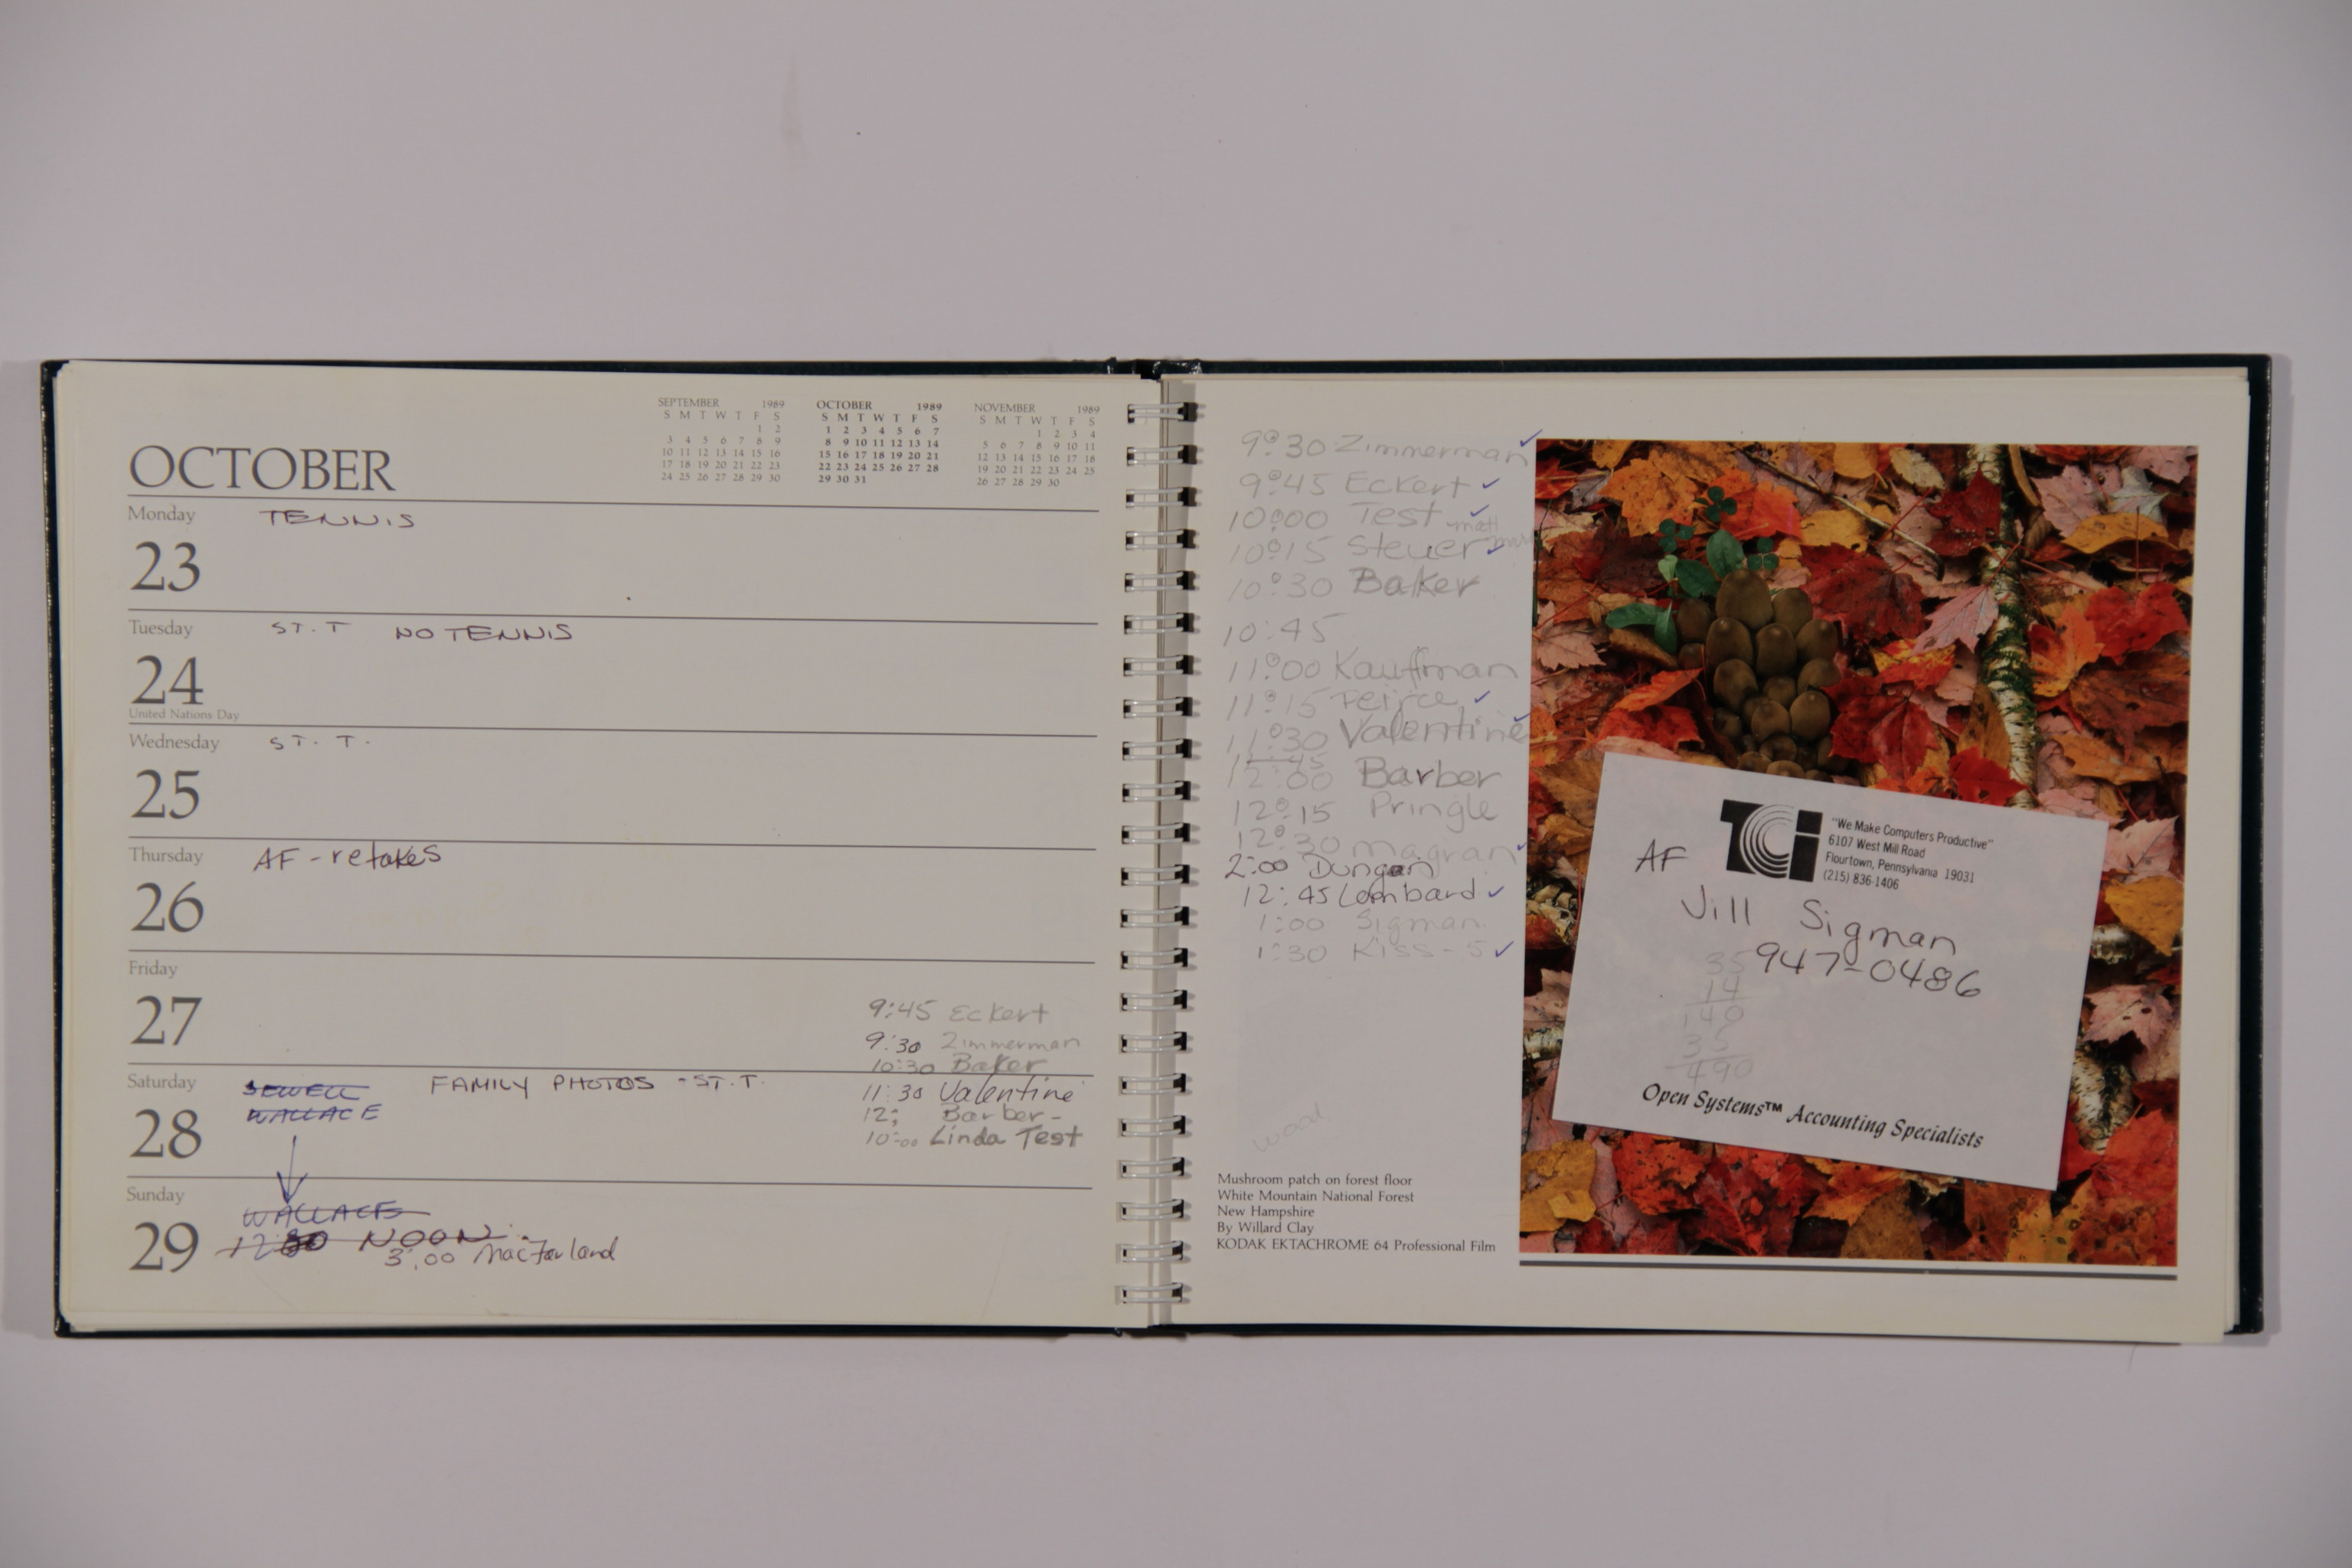 SEPTEMBER 1989
S M T W T F S
1 2
3 4 5 6 7 8 9
10 11 12 13 14 15 16
17 18 19 20 21 22 23
24 25 26 27 28 29 30
OCTOBER 1989
S M T W T F S
1 2 3 4 5 6 7
8 9 10 11 12 13 14
15 16 17 18 19 20 21
22 23 24 25 26 27 28
29 30 31
NOVEMBER 1989
S M T W T F S
1 2 3 4
5 6 7 8 9 10 11
12 13 14 15 16 17 18
19 20 21 22 23 24 25
26 27 28 29 30
OCTOBER
Monday TENNIS
23
Tuesday ST. T NO TENNIS
24
United Nations Day
Wednesday ST. T.
25
Thursday AF - retakes
26
Friday
27
9:45 Eckert
9:30 Zimmerman
10:30 Baker
Saturday SEWELL FAMILY PHOTOS - ST. T.
WALLACE
28
11:30 Valentine
12: Barber -
10:00 Linda Test
Sunday
WALLACE
29 NOON
3:00 MacFarland
9:30 Zimmerman ✓
9:45 Eckert ✓
10:00 Test ✓
10:15 Steuer ✓
10:30 Baker
10:45
11:00 Kauffman
11:15 Peirce ✓
11:30 Valentine ✓
12:00 Barber
12:15 Pringle
12:30 Magran ✓
2:00 Dungan
12:45 Lombard ✓
1:00 Sigman
1:30 Kiss - 5 ✓
wood
Mushroom patch on forest floor
White Mountain National Forest
New Hampshire
By Willard Clay
KODAK EKTACHROME 64 Professional Film
TCi
"We Make Computers Productive"
6107 West Mill Road
Flourtown, Pennsylvania 19031
(215) 836-1406
AF
Jill Sigman
947-0486
35
14
140
35
490
Open Systems™ Accounting Specialists